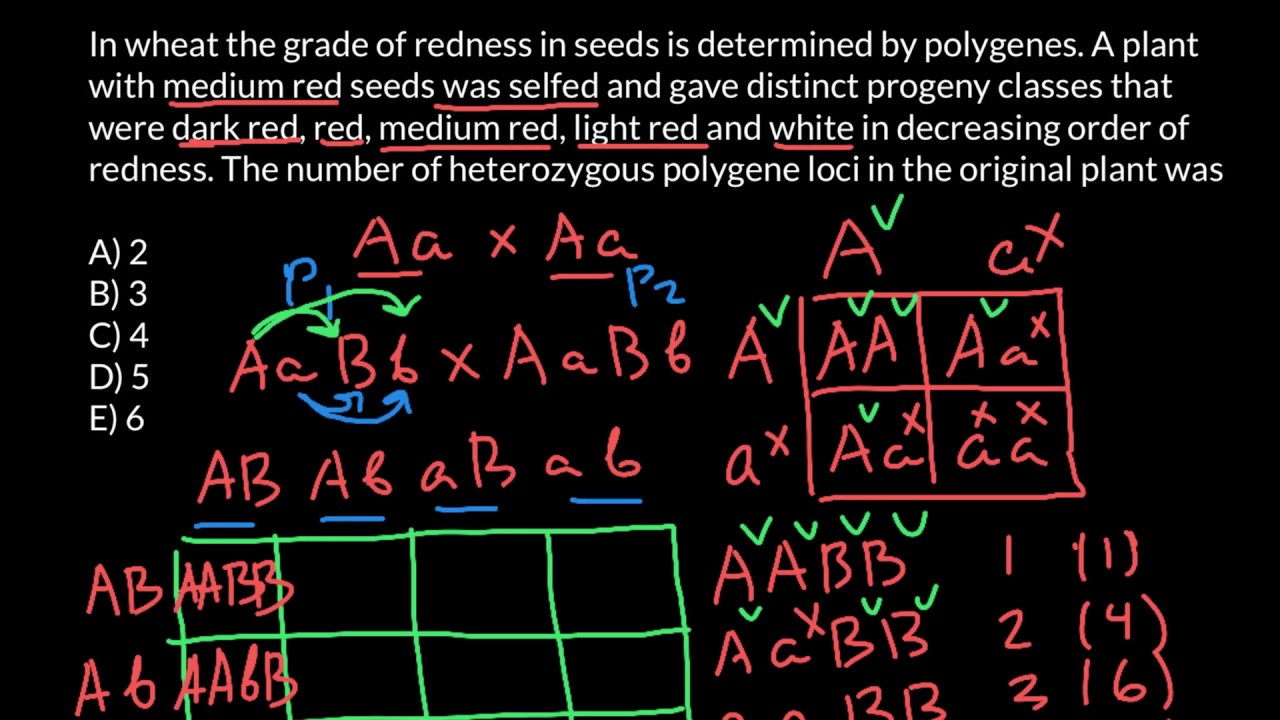 In wheat the grade of redness in seeds is determined by polygenes. A plant
with medium red seeds was selfed and gave distinct progeny classes that
were dark red, red, medium red, light red and white in decreasing order of
redness. The number of heterozygous polygene loci in the original plant was
A) 2
B) 3
C) 4
D) 5
E) 6
Aa x Aa
P1 P2
AaBb x AaBb
AB Ab aB ab
AB AABB
Ab AAbB
A a
A AA Aa
a Aa aa
AABB 1 (1)
AaBB 2 (4)
BB 3 (6)